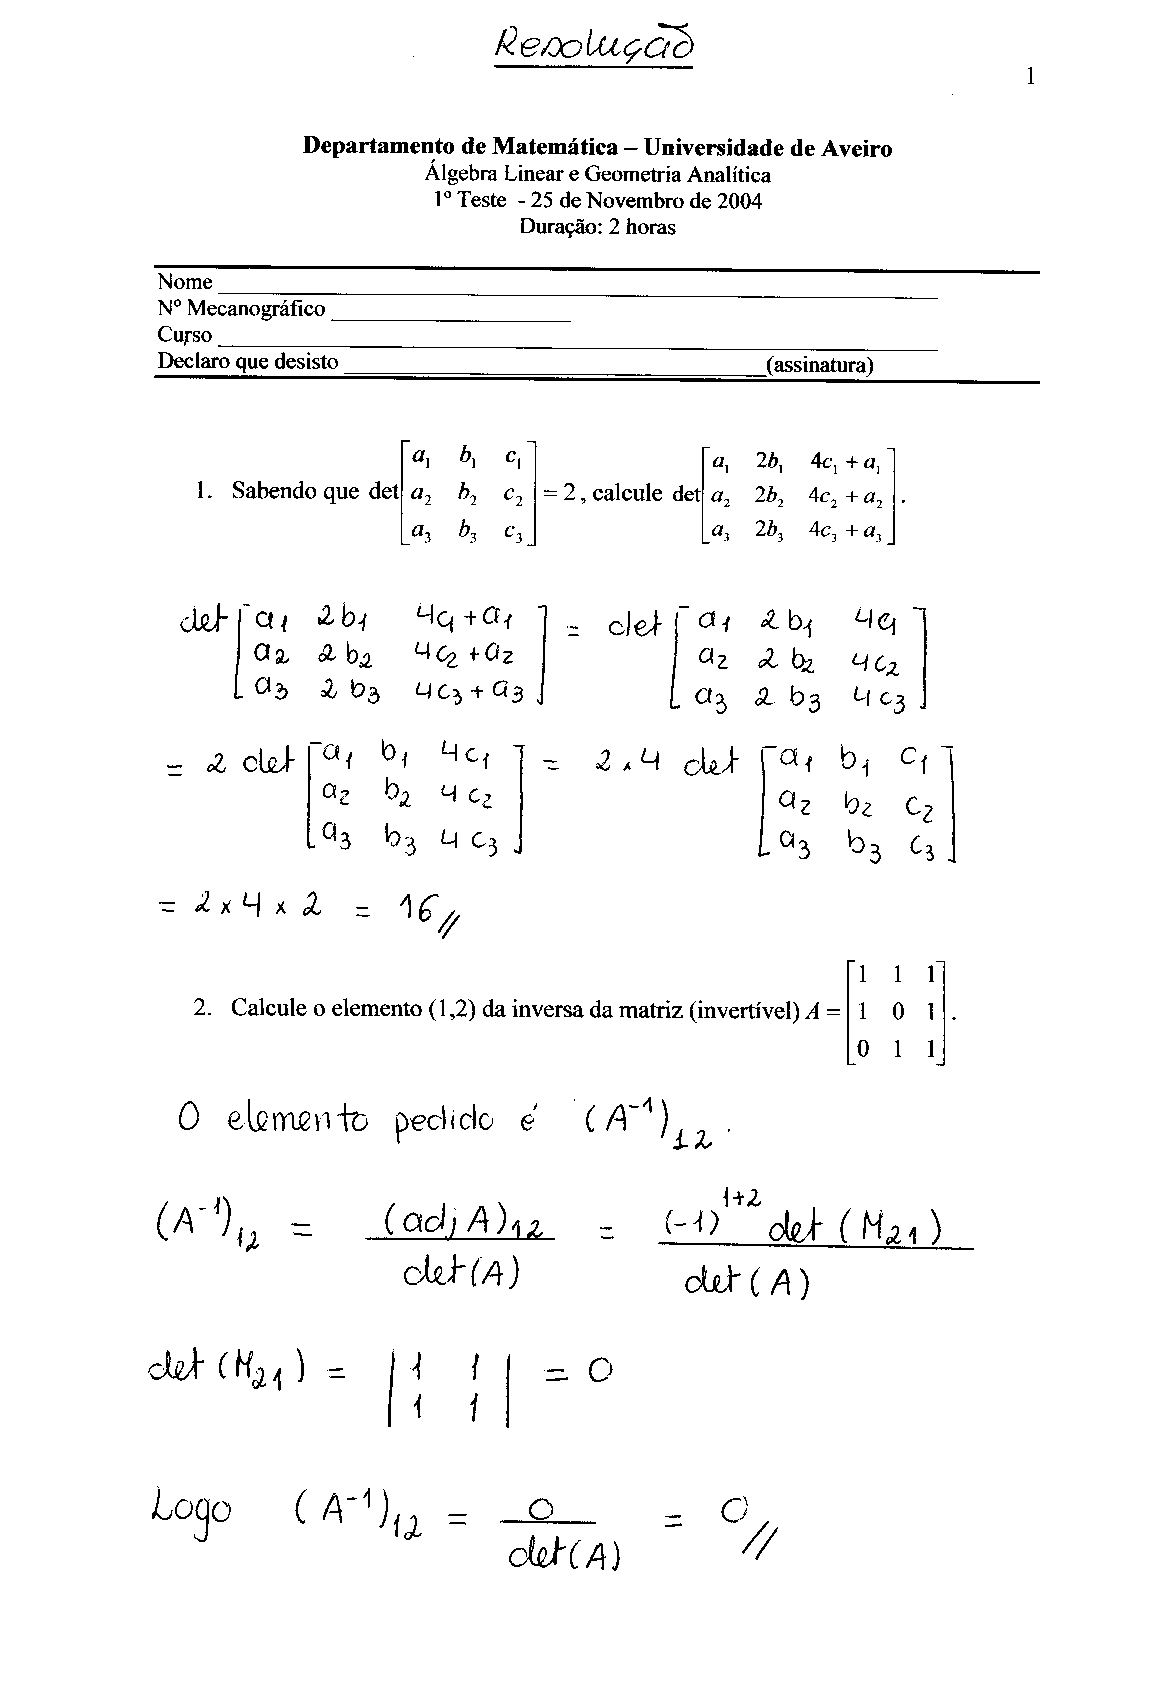 Resolução
1
Departamento de Matemática – Universidade de Aveiro
Álgebra Linear e Geometria Analítica
1º Teste - 25 de Novembro de 2004
Duração: 2 horas
Nome
Nº Mecanográfico
Curso
Declaro que desisto (assinatura)
1. Sabendo que det [a₁ b₁ c₁; a₂ b₂ c₂; a₃ b₃ c₃] = 2, calcule det [a₁ 2b₁ 4c₁ + a₁; a₂ 2b₂ 4c₂ + a₂; a₃ 2b₃ 4c₃ + a₃].
det [a₁ 2b₁ 4c₁+a₁; a₂ 2b₂ 4c₂+a₂; a₃ 2b₃ 4c₃+a₃] = det [a₁ 2b₁ 4c₁; a₂ 2b₂ 4c₂; a₃ 2b₃ 4c₃]
= 2 det [a₁ b₁ 4c₁; a₂ b₂ 4c₂; a₃ b₃ 4c₃] = 2×4 det [a₁ b₁ c₁; a₂ b₂ c₂; a₃ b₃ c₃]
= 2 × 4 × 2 = 16//
2. Calcule o elemento (1,2) da inversa da matriz (invertível) A = [1 1 1; 1 0 1; 0 1 1].
O elemento pedido é (A⁻¹)₁₂.
(A⁻¹)₁₂ = (adj A)₁₂ / det(A) = (-1)¹⁺² det (M₂₁) / det (A)
det (M₂₁) = |1 1; 1 1| = 0
Logo (A⁻¹)₁₂ = 0 / det(A) = 0//